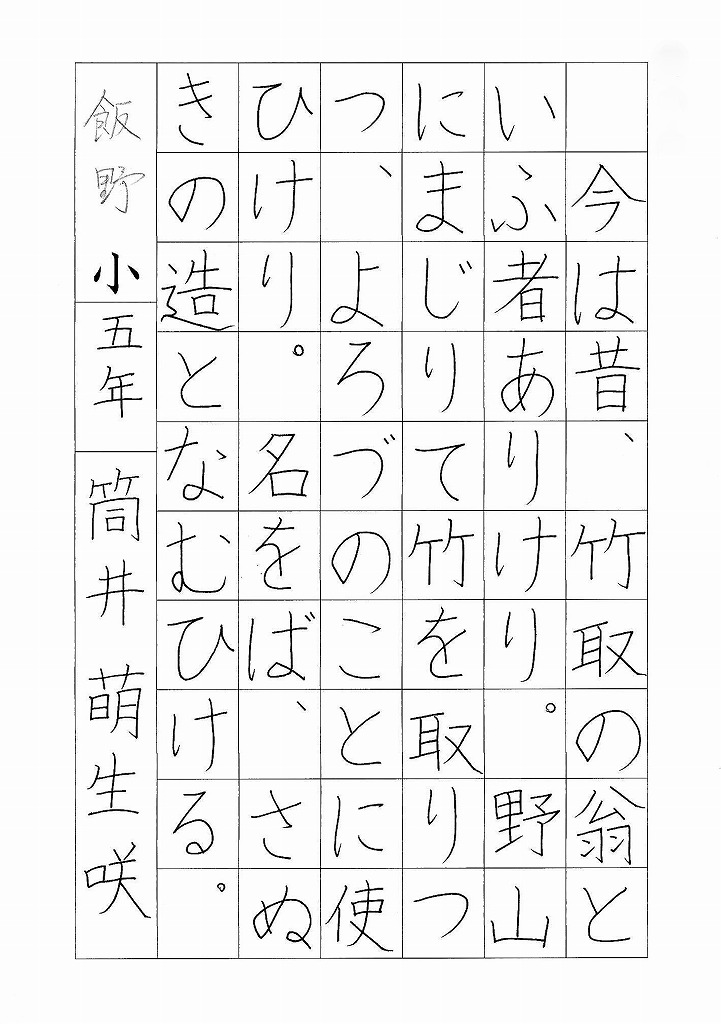 今は昔、竹取の翁と
いふ者ありけり。野山
にまじりて竹を取りつ
つ、よろづのことに使
ひけり。名をば、さぬ
きの造となむひける。
飯野小五年筒井萌生咲